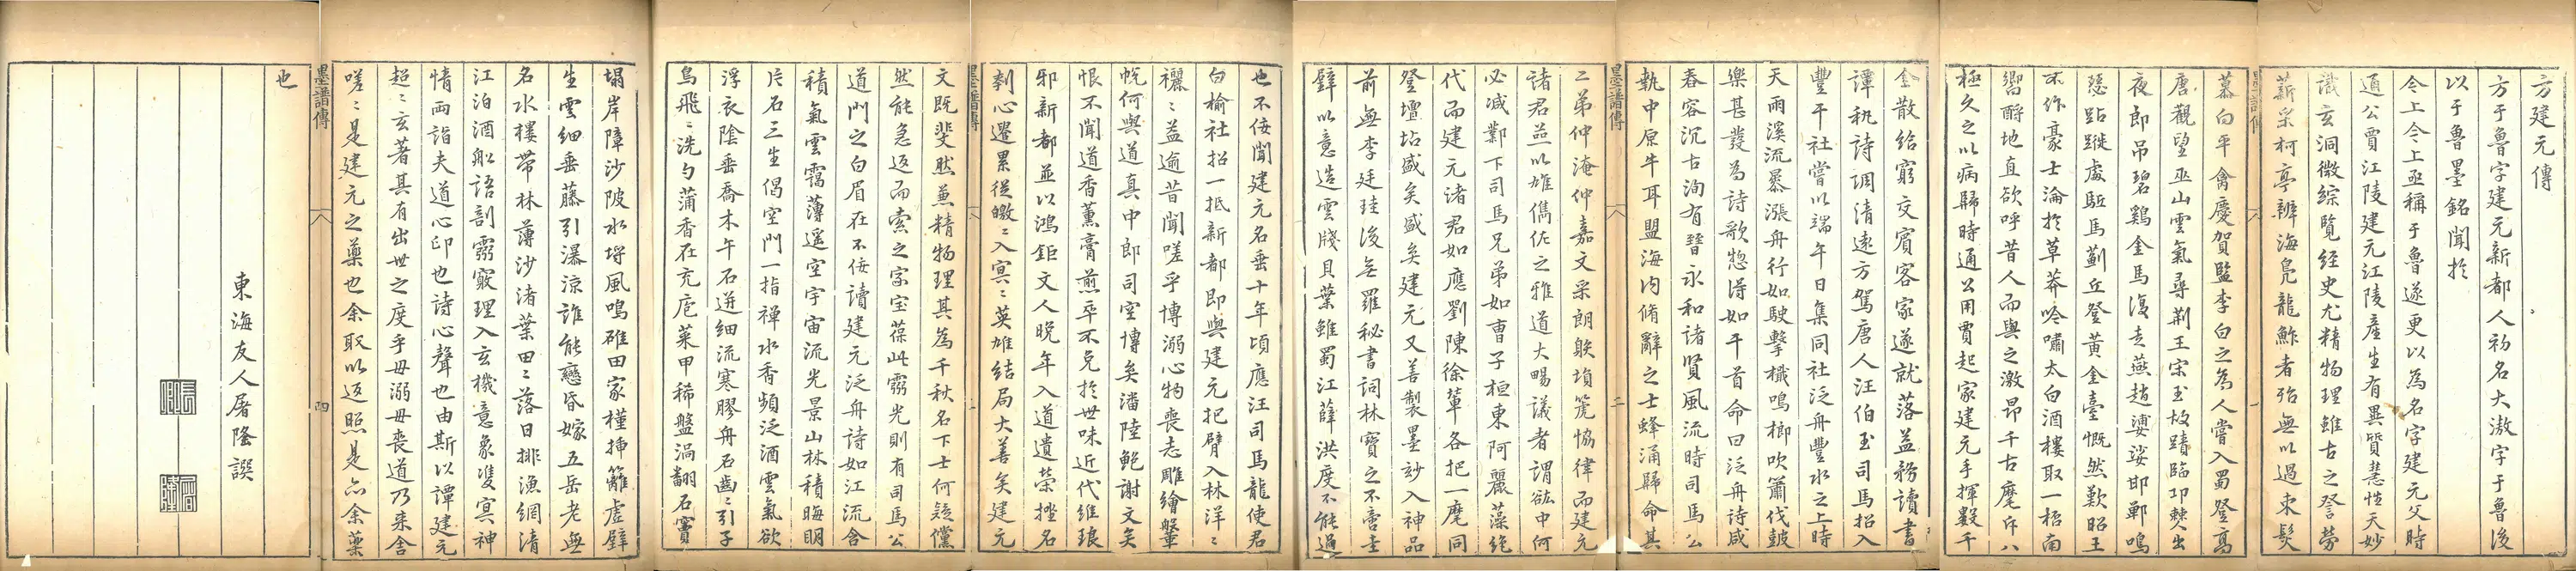 方建元傳
方于魯字建元新都人初名大滶字于魯後
以于魯墨銘聞於
今上今上亟稱于魯遂更以為名字建元父時
通公賈江陵建元江陵產生有異質慧性天妙
識玄洞微綜覽經史尤精物理雖古之詧勞
薪宋柯亭辨海鳧龍鮓者殆無以過束髮
慕向平禽慶賀監李白之為人嘗入蜀登高
唐觀望巫山雲氣尋荆王宋玉故蹟臨卭僰出
夜郎吊碧鷄金馬復去燕趙蹮躚邯鄲鳴
瑟跕蹝處駈馬薊丘登黃金臺慨然歎昭王
不作豪士淪於草莽吟嘯太白酒樓取一桮南
嚮酹地直欲呼昔人而與之激昂千古麾斥八
極久之以病歸時通公用賈起家建元手揮數千
金散給窮交賓客家遂就落益務讀書
譚秇詩調清遠方駕唐人汪伯玉司馬招入
豐干社嘗以端午日集同社泛舟豐水之上時
天雨溪流暴漲舟行如駛擊檝鳴榔吹簫伐鼓
樂甚發為詩歌惣得如干首命曰泛舟詩咸
舂容沉古洵有晉永和諸賢風流時司馬公
執中原牛耳盟海內脩辭之士蜂涌歸命其
二弟仲淹仲嘉文采朗映塤箎恊律而建元
諸君益以雄儁佐之雅道大暢議者謂谹中何
必減鄴下司馬兄弟如曹子桓東阿麗藻絶
代而建元諸君如應劉陳徐軰各把一麾同
登壇坫盛矣盛矣建元又善製墨玅入神品
前無李廷珪後無羅秘書詞林寶之不啻圭
璧以意造雲牋貝葉雖蜀江薛洪度不能過
也不佞聞建元名垂十年頃應汪司馬龍使君
白榆社招一抵新都即與建元把臂入林洋洋
襹襹益逾昔聞嗟乎博溺心物喪志雕繪鞶
帨何與道真中郎司空博矣潘陸鮑謝文矣
恨不聞道香薰膏煎卒不免於世味近代維琅
邪新都並以鴻鉅文人晚年入道遺榮挫名
刳心遷累從皦皦入冥冥英雄結局大善矣建元
文既斐然兼精物理其為千秋名下士何疑儻
然能急返而索之宗寶葆此靈光則有司馬公
道門之白眉在不佞讀建元泛舟詩如江流含
積氣雲靄薄遥空宇宙流光景山林積晦明
片石三生偈空門一指禪水香頻泛酒雲氣欲
浮衣陰垂喬木午石迸細流寒膠舟石齒齒引子
烏飛飛洗勺蒲香在充庖菜甲稀盤渦翻石竇
塌岸障沙陂水塒風鳴碓田家槿揷籬虛壁
生雲細垂藤引瀑涼誰能戀昏嫁五岳老無
名水樓帶林薄沙渚葉田田落日排漁網清
江泊酒舩語剖靈竅理入玄機意象雙冥神
情両詣夫道心印也詩心聲也由斯以譚建元
超超玄著其有出世之度乎毋溺毋喪道乃来舍
嗟嗟是建元之藥也余取以返照是亦余藥
也
東海友人屠隆譔
墨譜傳